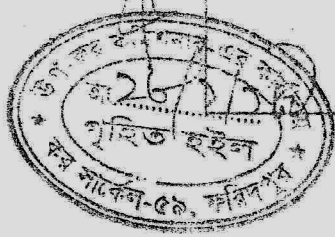 উপ কর কমিশনার এর কার্যালয়
গৃহিত হইল
কর সার্কেল-৫৯, ফরিদপুর